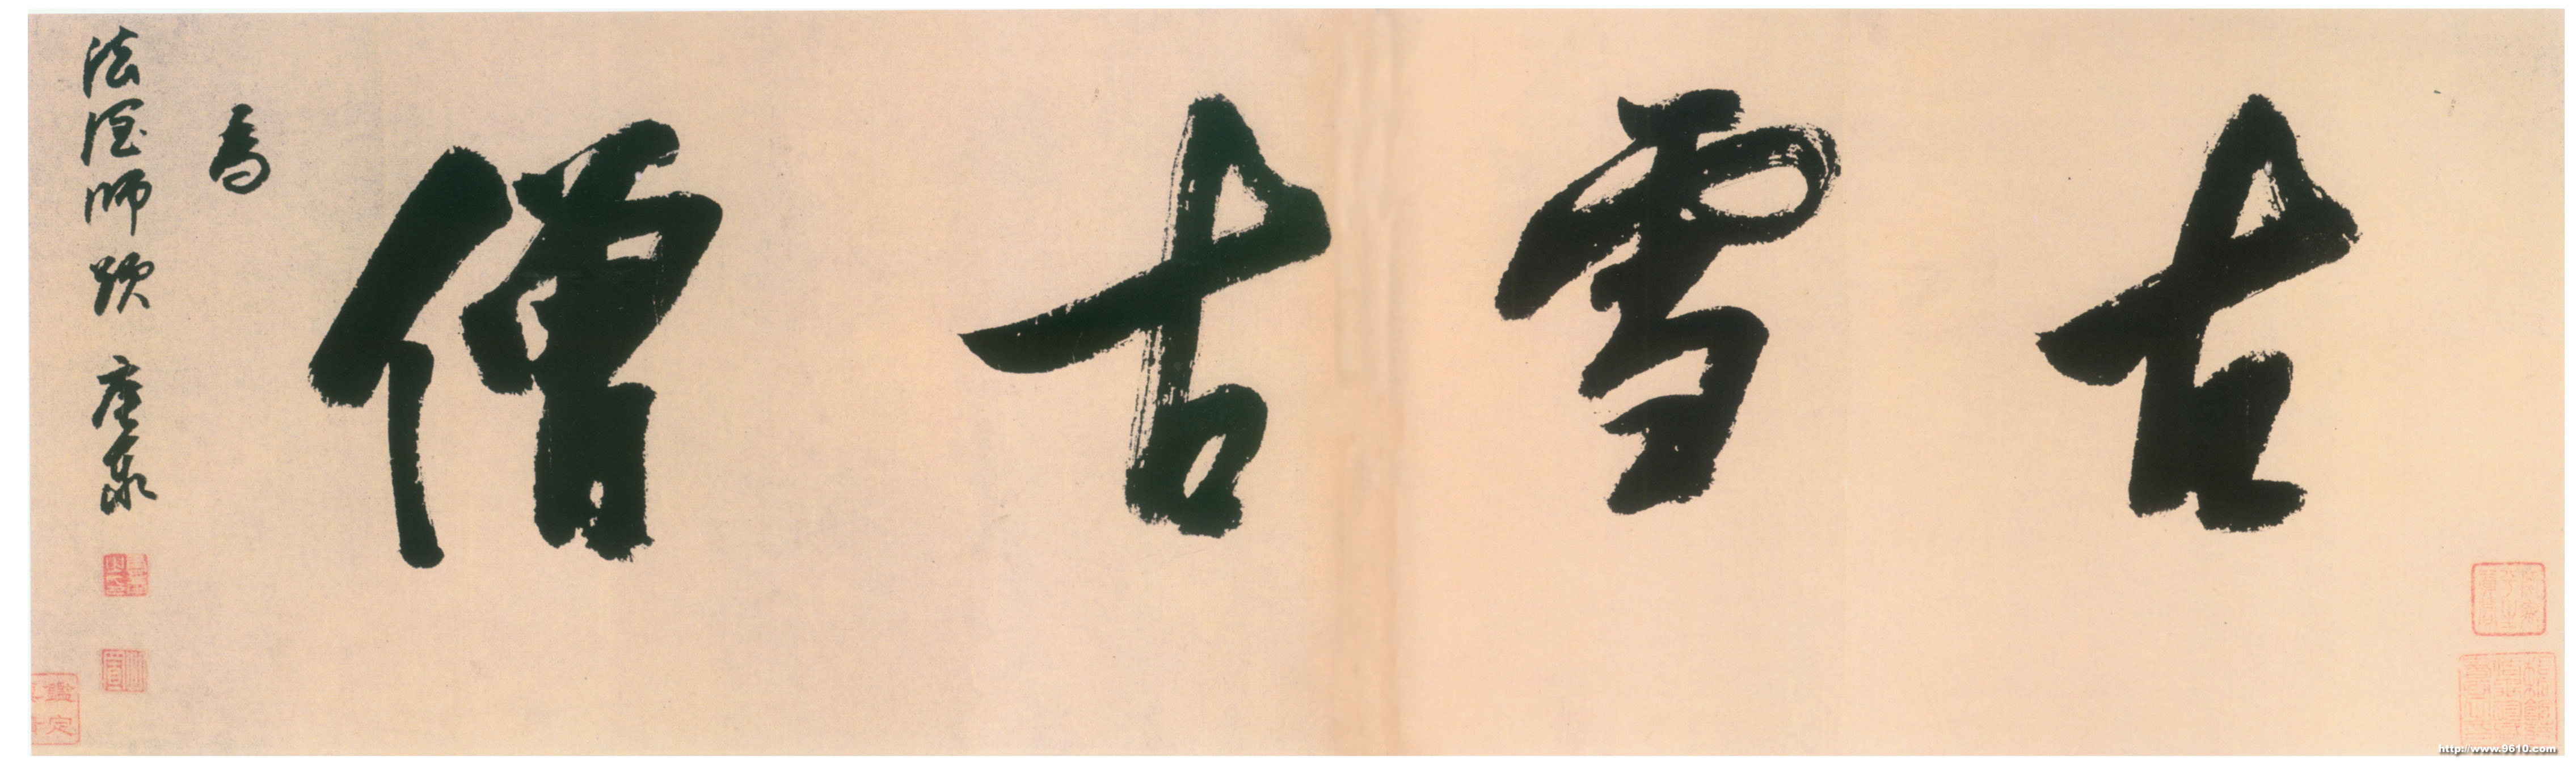 古雪古僧
為
法師題 唐泰
鑑定
http://www.9610.com